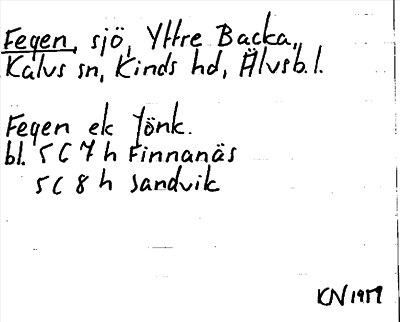 Fegen, sjö, Yttre Backa,
Kalvs sn, Kinds hd, Älvsb.l.
Fegen ek Jönk.
bl. 5C 7h Finnanäs
5C 8h Sandvik
KN